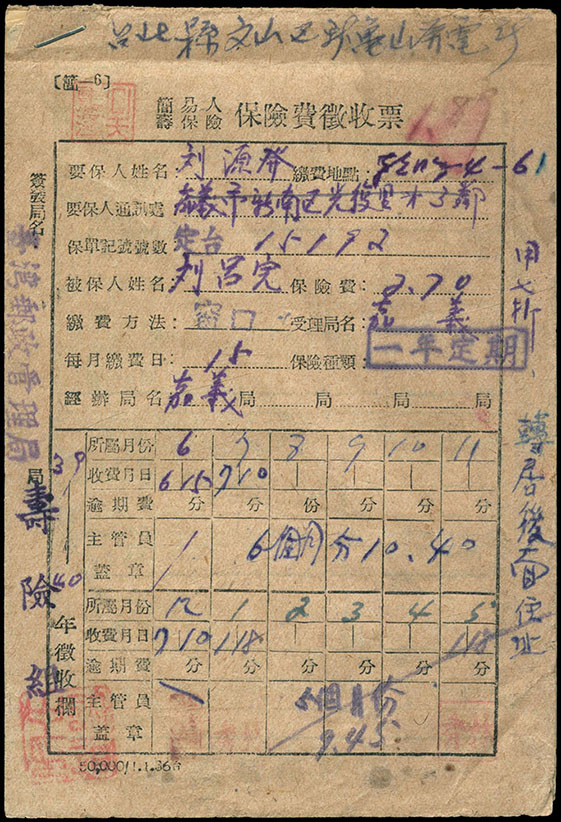 台北縣文山區
〔簡—6〕
簡易人壽保險 保險費徵收票
要保人姓名 刘源發 繳費地點:
要保人通訊處 嘉義市新南區
保單記號號數 定台 15192
被保人姓名 刘呂完 保險費: 2.70
繳費方法: 窓口 受理局名: 嘉義
每月繳費日: 15 保險種類: 一年定期
經辦局名 嘉義 局 局 局 局
所屬月份 6 7 8 9 10 11
收費月日 6 15 7 10
逾期費 分 分 份 分 分 分
主管員蓋章 6個月分10.40
所屬月份 12 1 2 3 4 5
收費月日 7 10 1 18 1 18
逾期費 分 分 分 分 分 分
主管員蓋章 5個月份
9.45
50,000/1.1.36
簽發局名
臺灣郵政管理局
局
壽險組
39
40
年徵收欄
轉居後面住址